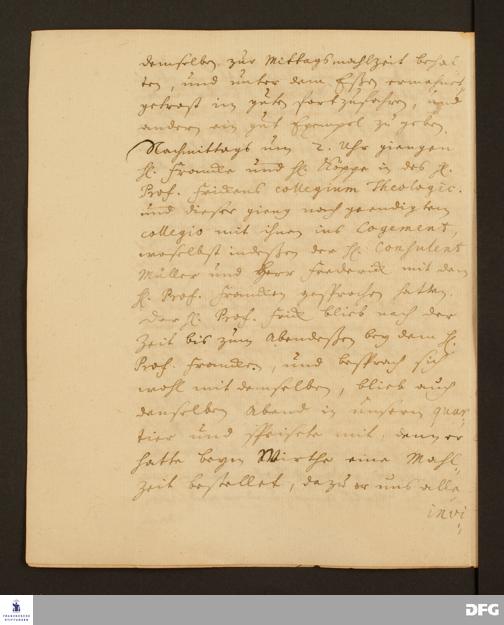 demselben zur Mittagsmahlzeit behal
ten, und unter dem Eßen ermahnet
getrost im guten fortzufahren, und
andern ein gut Exempel zu geben.
Nachmittags um 2. Uhr giengen
H. Francke und H. Köppe in des H.
Prof. collegium Theologic.
und dieser gieng nach geendigtem
collegio mit ihnen ins Logement,
woselbst indeßen der H. Consulent
Müller und Herr Friderici mit dem
H. Prof. Francken gesprochen hatten.
Der H. Prof. blieb nach der
Zeit bis zum Abendeßen bey dem H.
Prof. Francken, und besprach sich
wohl mit demselben, blieb auch
denselben Abend in unserm quar
tier und speisete mit, denn er
hatte beym Wirthe eine Mahl
zeit bestellet, dazu er uns alle
invi
FRANCKESCHE
STIFTUNGEN
DFG